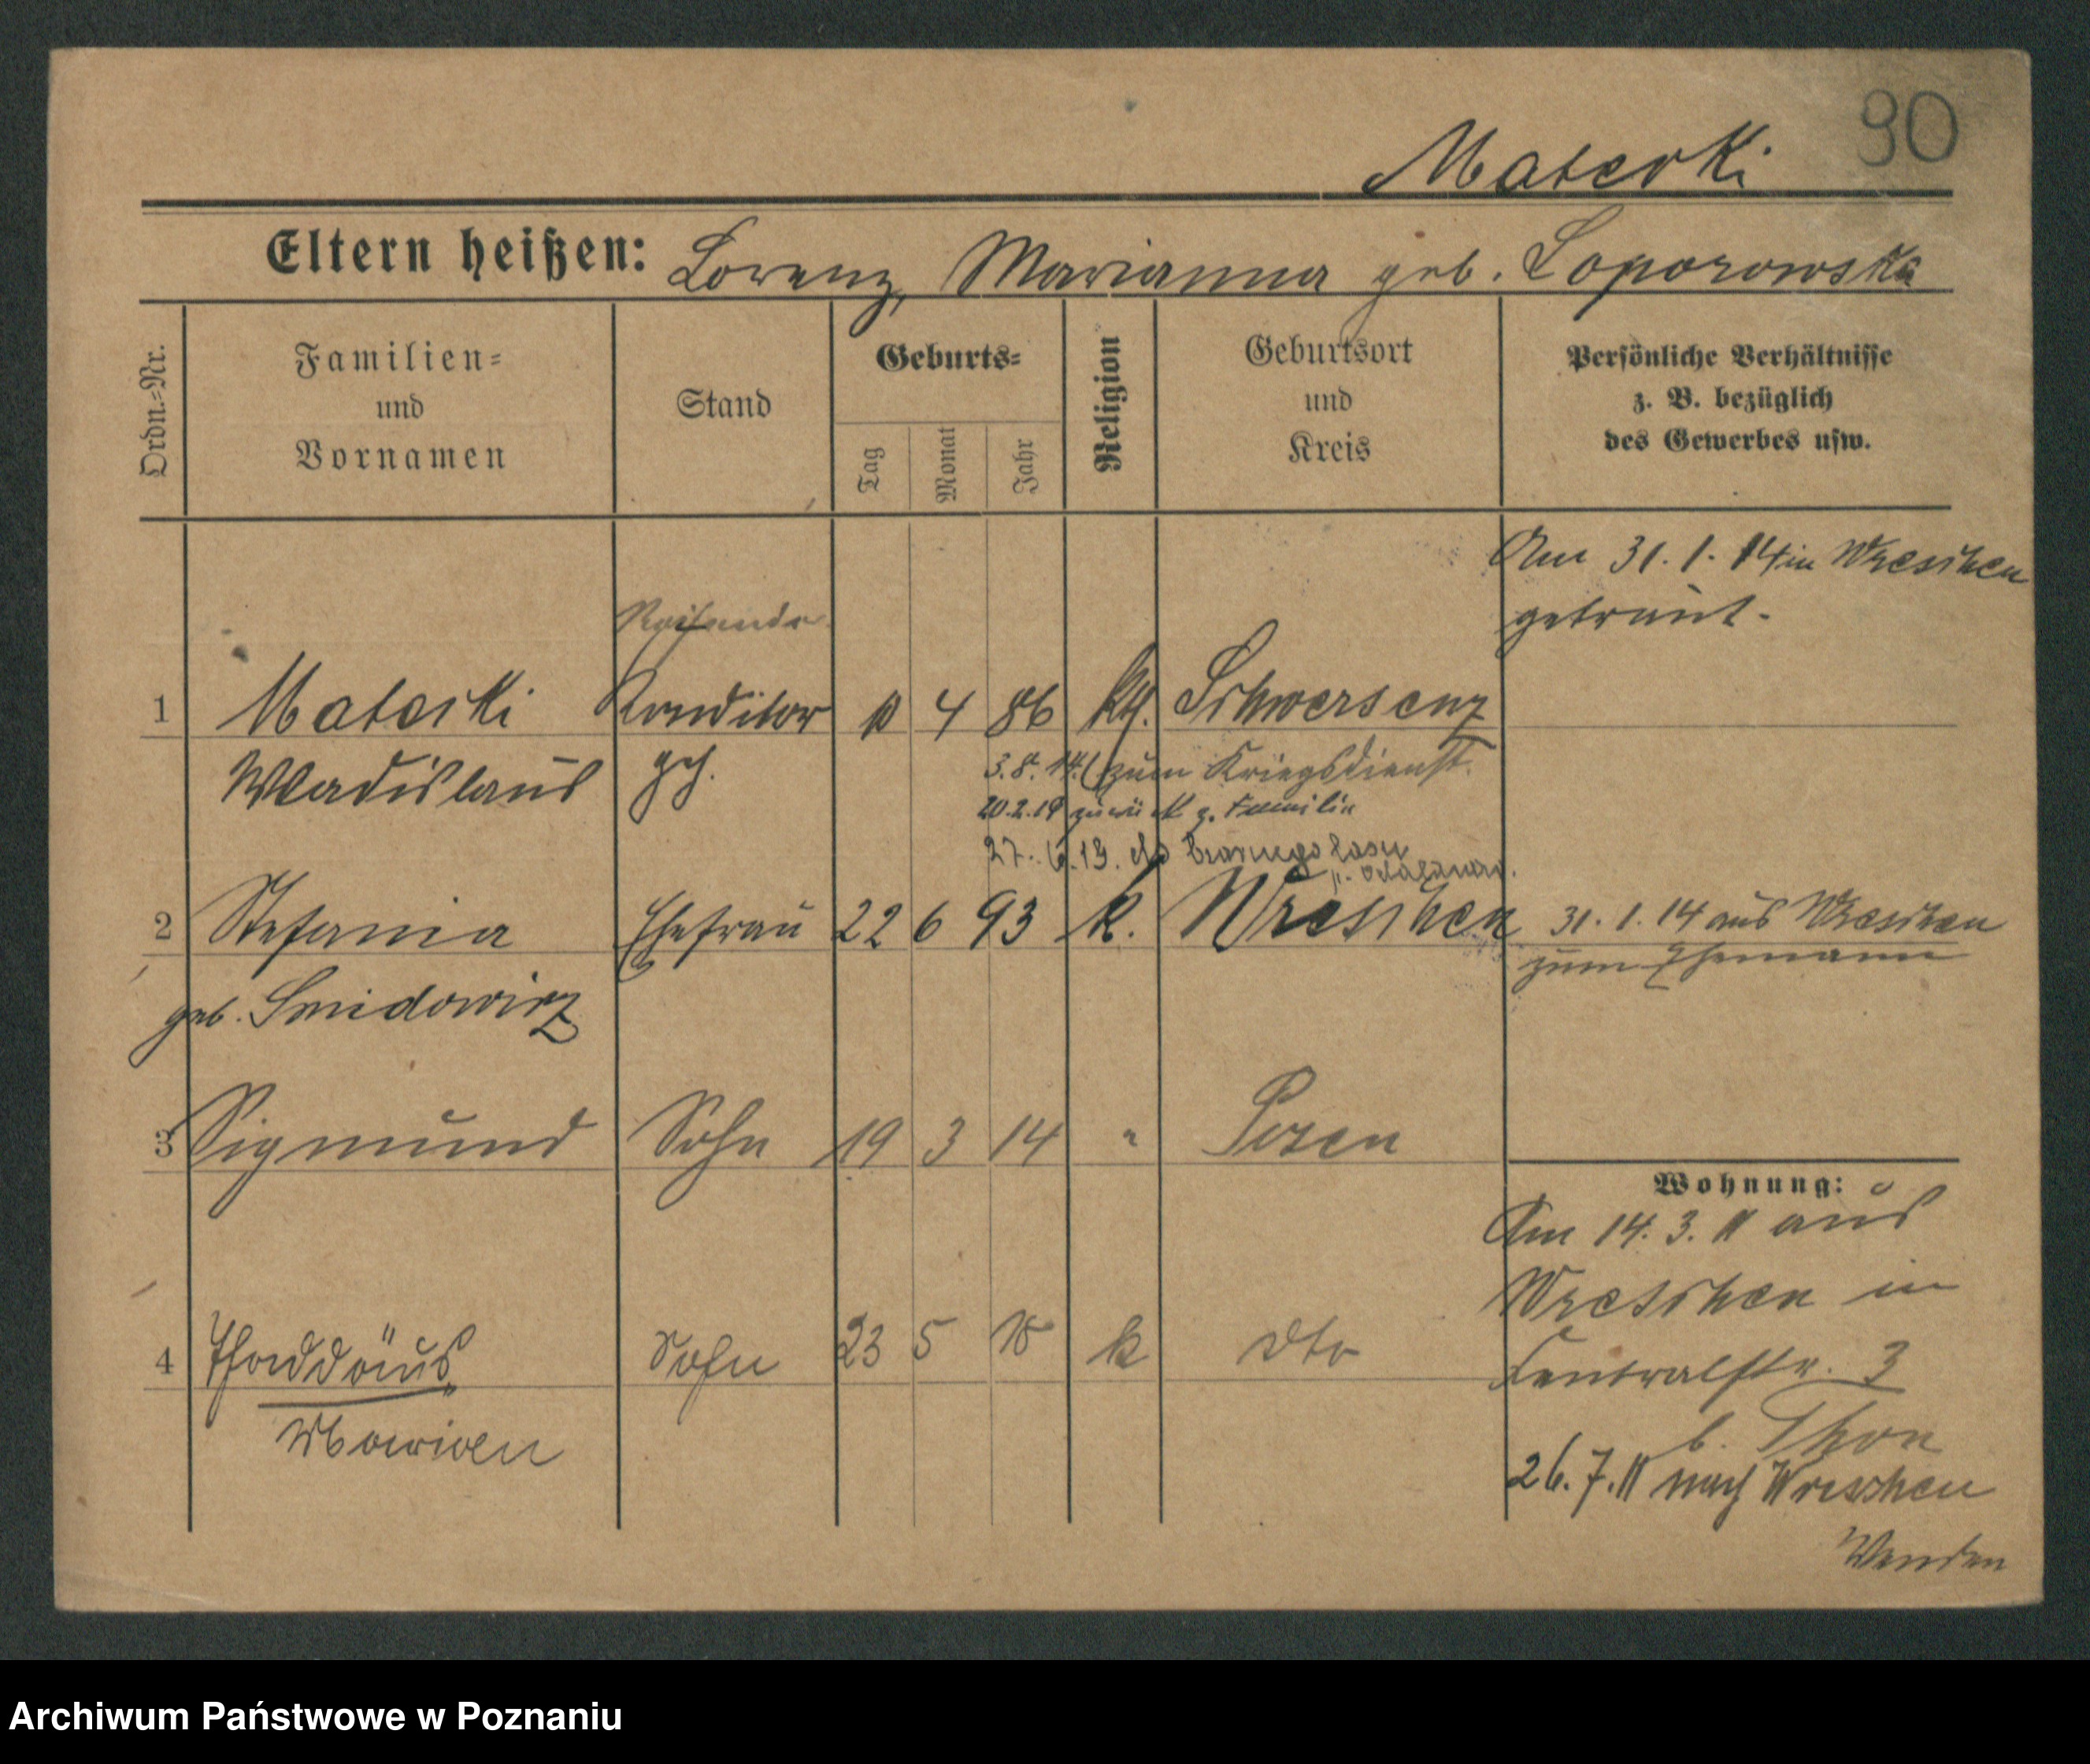 90
Materki
Eltern heißen: Lorenz, Marianna geb. Toporowska
Ordn.-Nr.
Familien-
und
Vornamen
Stand
Geburts-
Tag
Monat
Jahr
Religion
Geburtsort
und
Kreis
Persönliche Verhältnisse
z. B. bezüglich
des Gewerbes usw.
Am 31. 1. 14 in Wreschen
getraut.
Reisender
1 Materki Konditor 10 4 86 kth. Schwersenz
Wladislaus
3.8.14. zum Kriegsdienst.
20.2.19 zurück z. Familie
27. 6.19. do Czarnego lasu
2 Stefania Ehefrau 22 6 93 k. Wreschen 31. 1. 14 aus Wreschen
zum Ehemann
geb. Smidowicz
3 Sigmund Sohn 19 3 14 " Posen
Wohnung:
Am 14. 3. 11 aus
Wreschen in
4 Thaddäus Sohn 23 5 18 k dto
Centralstr. 3
Marian
b. Thon
26. 7. 11 nach Wreschen
Wenden
Archiwum Państwowe w Poznaniu